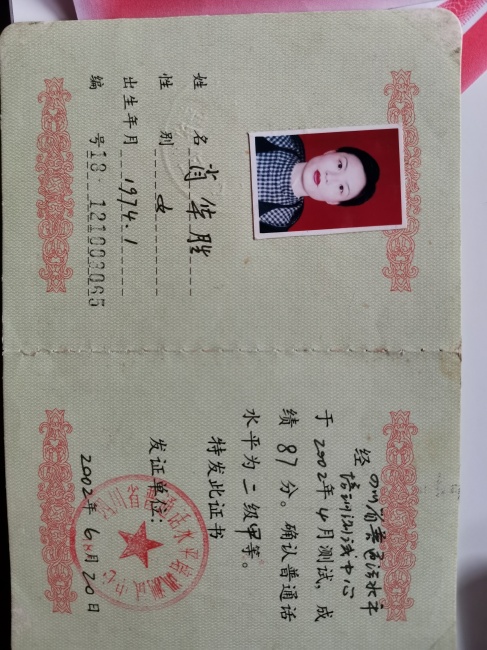 姓 名 肖华胜
性 别 女
出生年月 1974.1
编 号 18-121003065
经 四川省普通话水平
培训测试中心
于 2002年4月测试,成
绩 87 分。确认普通话
水平为二级甲等。
特发此证书
发证单位:
2002年6月20日